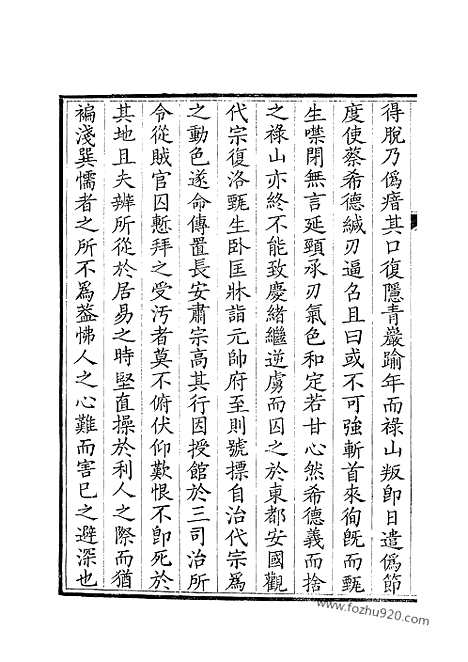 得脫乃偽瘖其口復隱青巖踰年而祿山叛卽日遣偽節
度使蔡希德緘刃逼召且曰或不可強斬首來徇旣而甄
生噤閉無言延頸承刃氣色和定若甘心然希德義而捨
之祿山亦終不能致慶緒繼逆虜而囚之於東都安國觀
代宗復洛甄生卧匡牀詣元帥府至則號摽自治代宗爲
之動色遂命傳置長安肅宗高其行因授館於三司治所
令從賊官囚慙拜之受汚者莫不俯伏仰歎恨不卽死於
其地且夫辨所從於居易之時堅直操於利人之際而猶
褊淺巽懦者之所不爲葢怫人之心難而害已之避深也
www.fozhu920.com